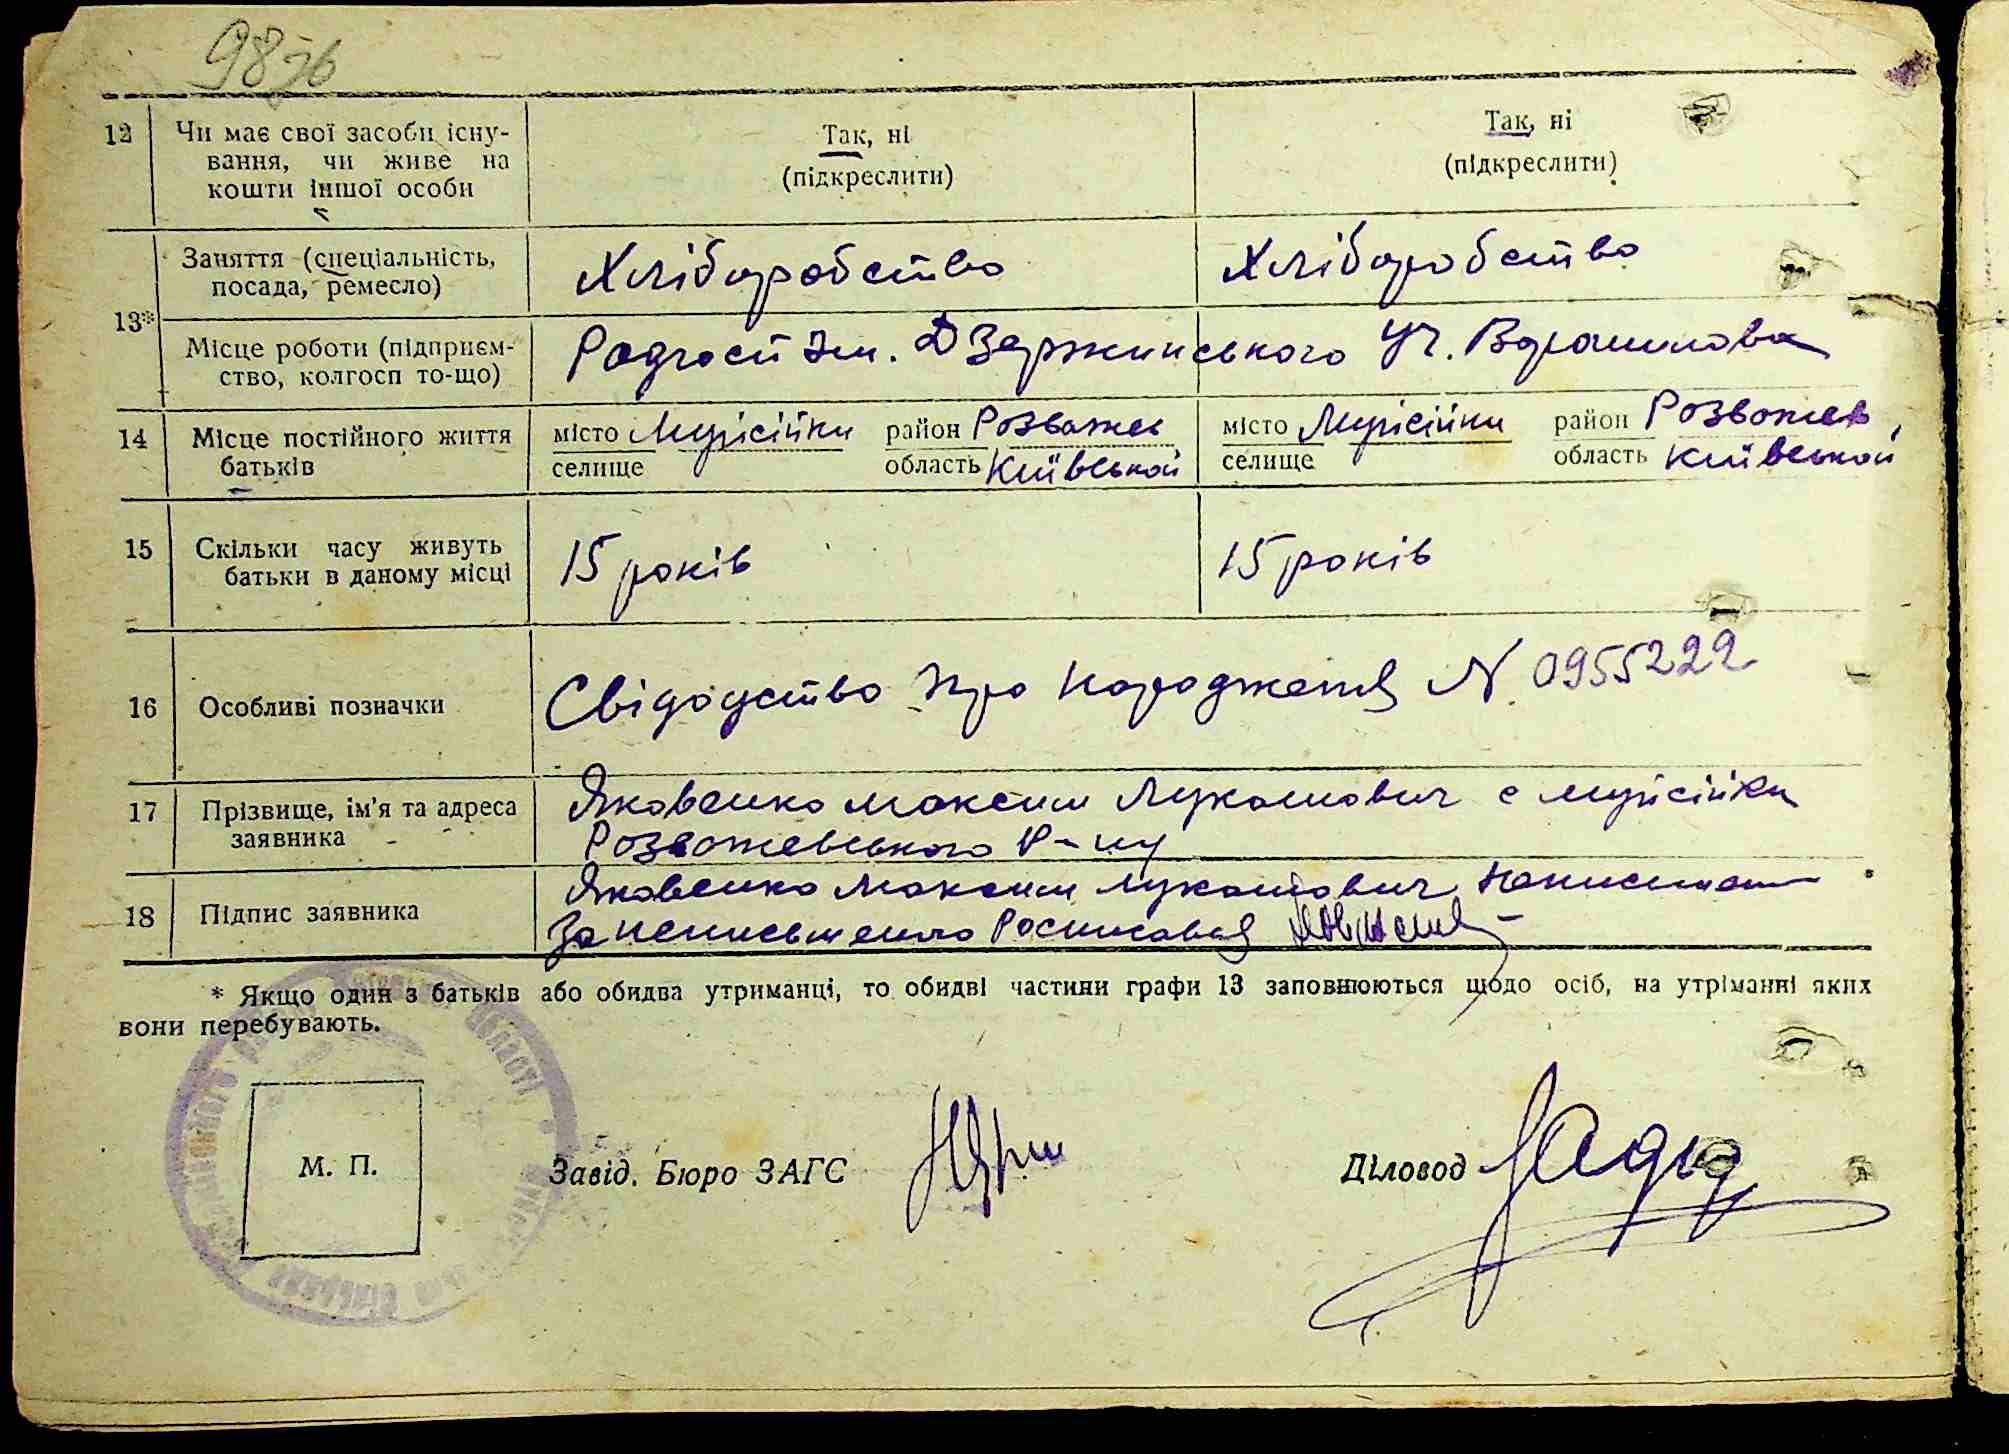 98зв
12 Чи має свої засоби існу- Так, ні Так, ні
вання, чи живе на (підкреслити) (підкреслити)
кошти іншої особи
13* Заняття (спеціальність, Хліборобство Хліборобство
посада, ремесло)
Місце роботи (підприєм- Радгосп ім. Дзержинського Уч. Ворошилова
ство, колгосп то-що)
14 Місце постійного життя місто Мусійки район Розважев місто Мусійки район Розважев
батьків селище область Київській селище область Київській
15 Скільки часу живуть 15 років 15 років
батьки в даному місці
16 Особливі позначки Свідоцтво про народження N 0955222
17 Прізвище, ім'я та адреса Яковенко Максим Лукашович с Мусійки
заявника Розважевського р-ну
18 Підпис заявника Яковенко Максим Лукашович
За неписьменого Росписався
* Якщо один з батьків або обидва утриманці, то обидві частини графи 13 заповнюються щодо осіб, на утріманні яких
вони перебувають.
М. П. Завід. Бюро ЗАГС Діловод